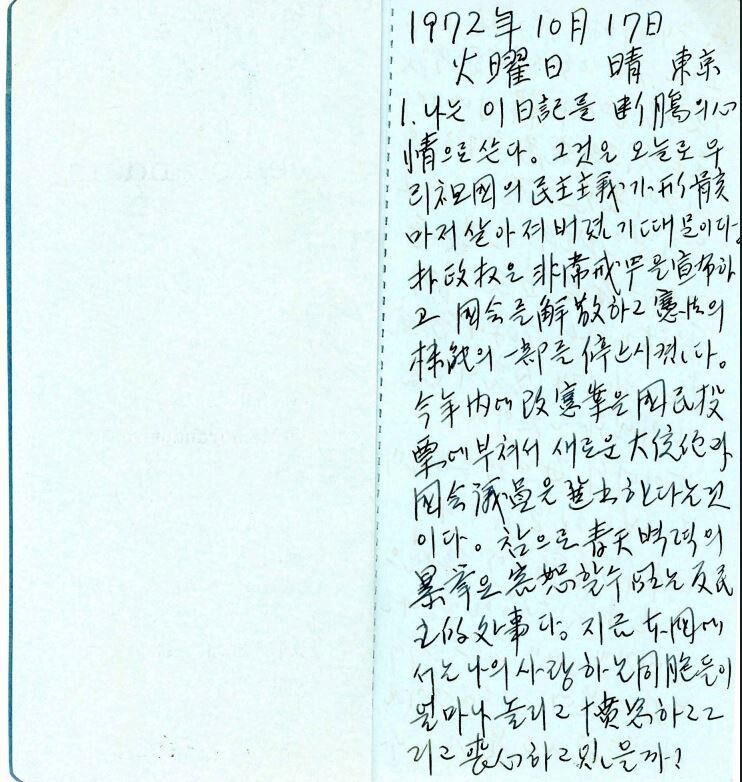 1972年 10月 17日
火曜日 晴 東京
1. 나는 이 日記를 断腸의 心
情으로 쓴다。 그것은 오늘로 우
리 祖国의 民主主義가 形骸
마저 살아져 버렸기 때문이다。
朴政权은 非常戒罗을 宣布하
고 国会를 解散하고 憲法의
機能의 一部를 停止시켰다。
今年内에 改憲案을 国民投
票에 부쳐서 새로운 大统领과
国会議員을 選出한다는 것
이다。 참으로 春天벽력의
暴挙요 容恕할 수 없는 反民
主的 处事다。 지금 本国에
서는 나의 사랑하는 同胞들이
얼마나 놀리고 憤怒하고 그
리고 喪心하고 있을까?